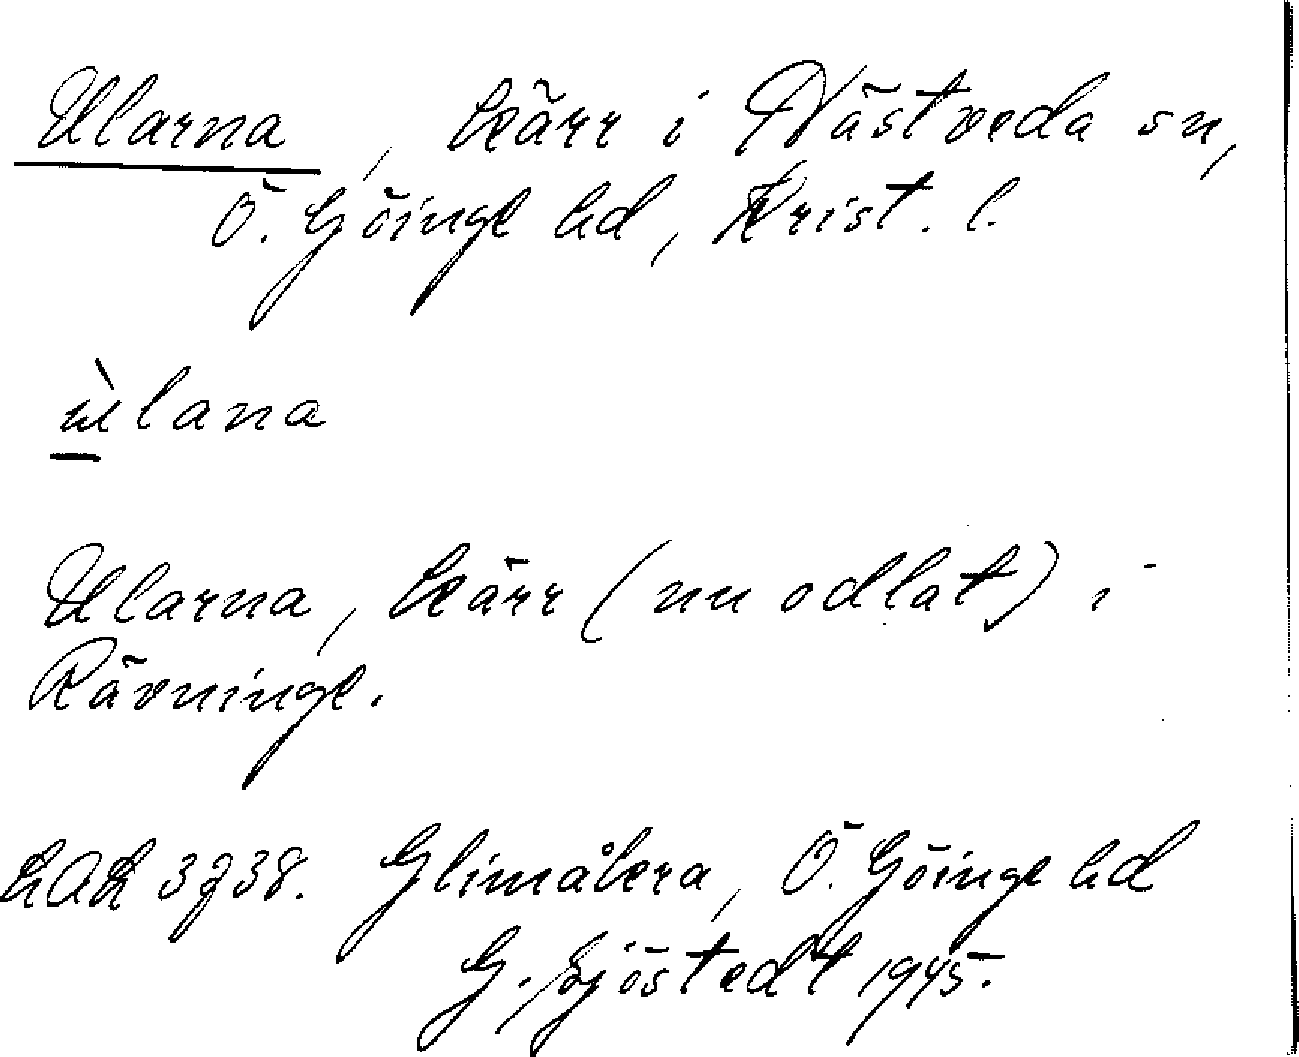 Ularna, kärr i Västveda sn,
Ö. Göinge hd, Krist. l.
ùlana
Ularna, kärr (nu odlat) i
Rävninge.
LAL 3738. Glimåkra, Ö. Göinge hd
G. Sjöstedt 1945.